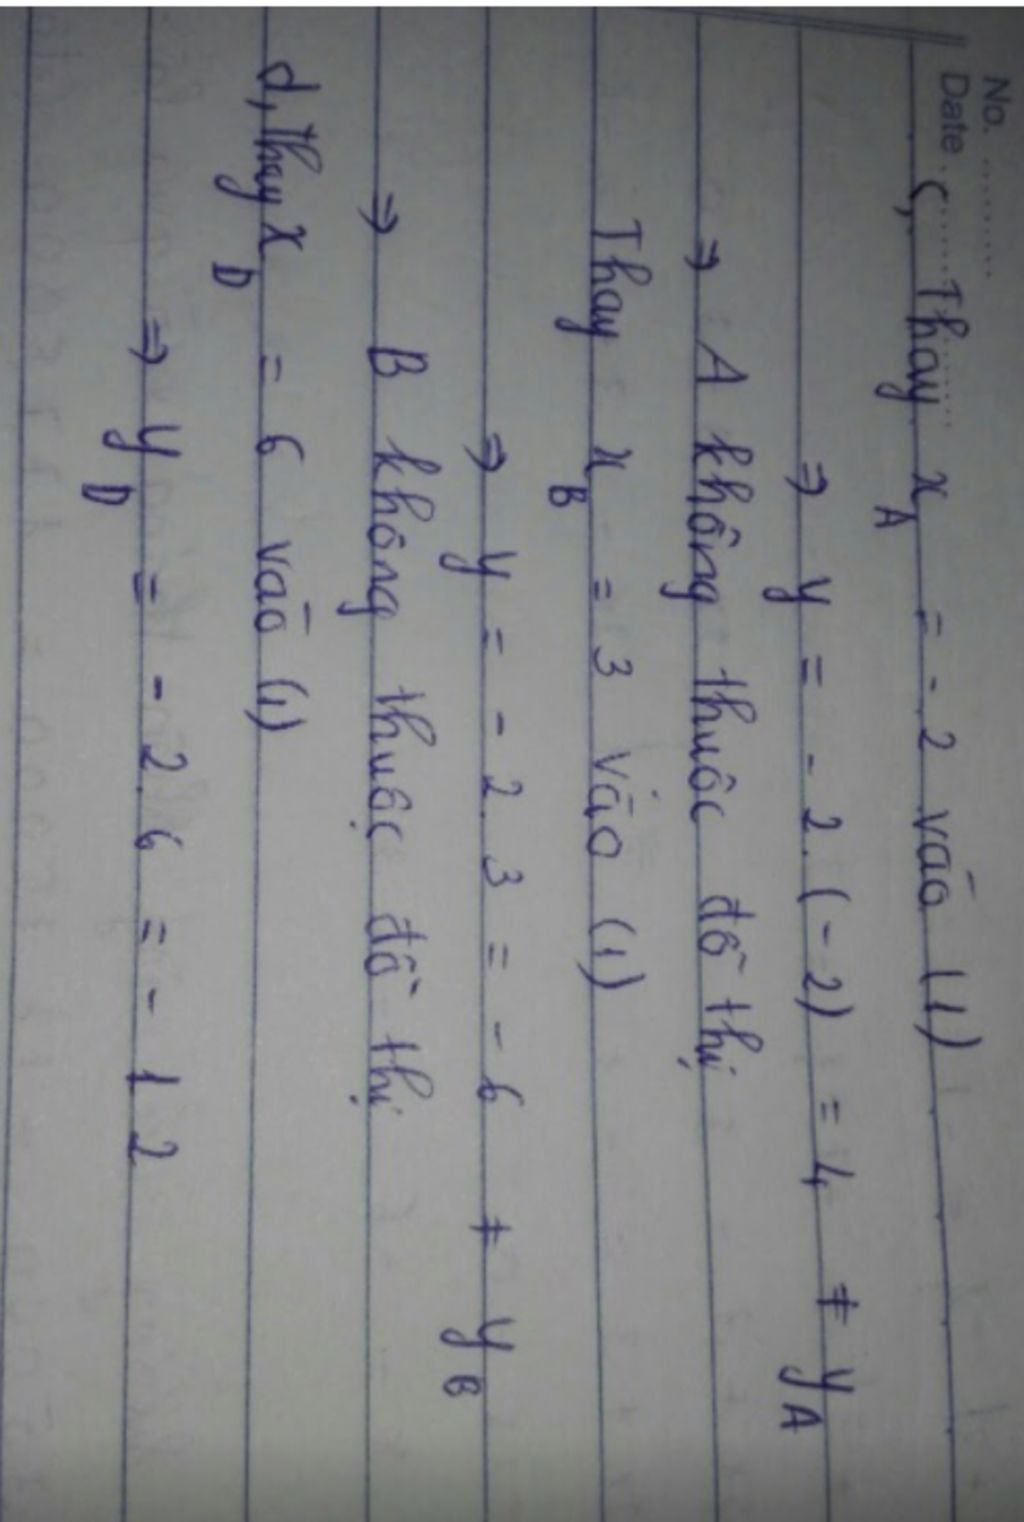 No. ...........
Date ...........
c, Thay x_A = - 2 vào (1)
⇒ y = - 2. (- 2) = 4 ≠ y_A
⇒ A không thuộc đồ thị
Thay x_B = 3 vào (1)
⇒ y = - 2. 3 = - 6 ≠ y_B
⇒ B không thuộc đồ thị
d, Thay x_D = 6 vào (1)
⇒ y_D = - 2. 6 = - 12